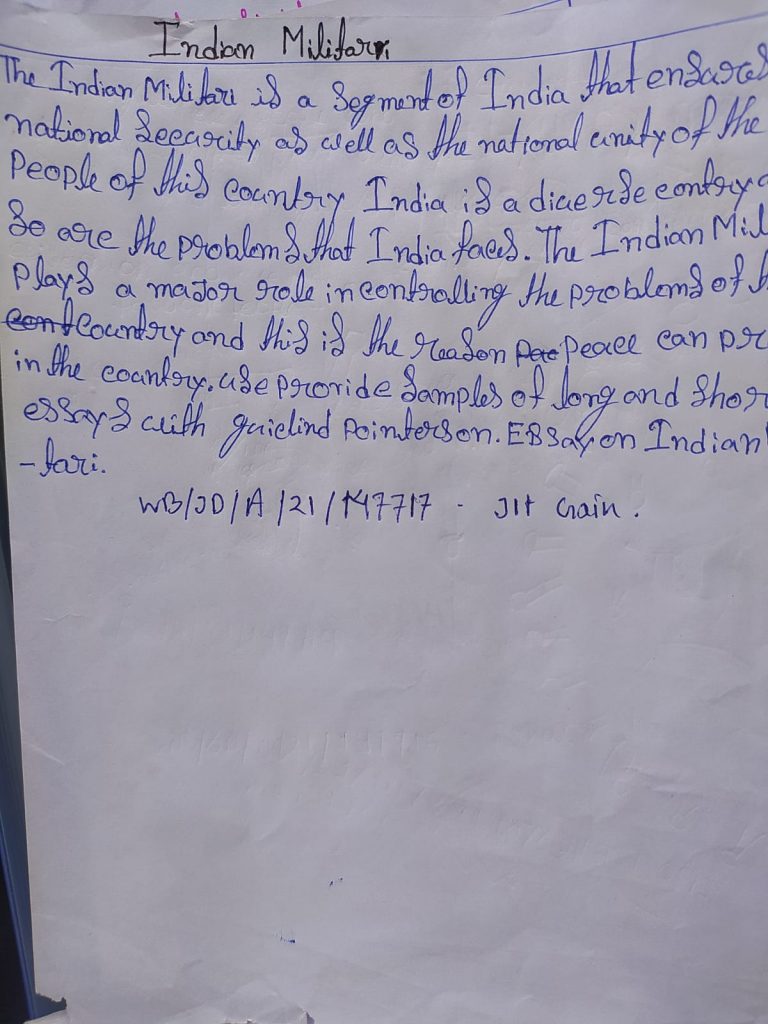 Indian Militari
The Indian Militari is a Segment of India that ensures
national Seecurity as well as the national unity of the
People of this country India is a diverse contry
So are the problems that India faces. The Indian Mil
Plays a major role in controlling the problems of
cont Country and this is the reason Pee Peace can pr
in the country. use provide Samples of long and Shor
essays with guielind Pointerson. ESSay on Indian
-tari.
WB/JD/A/21/147717 - JIT